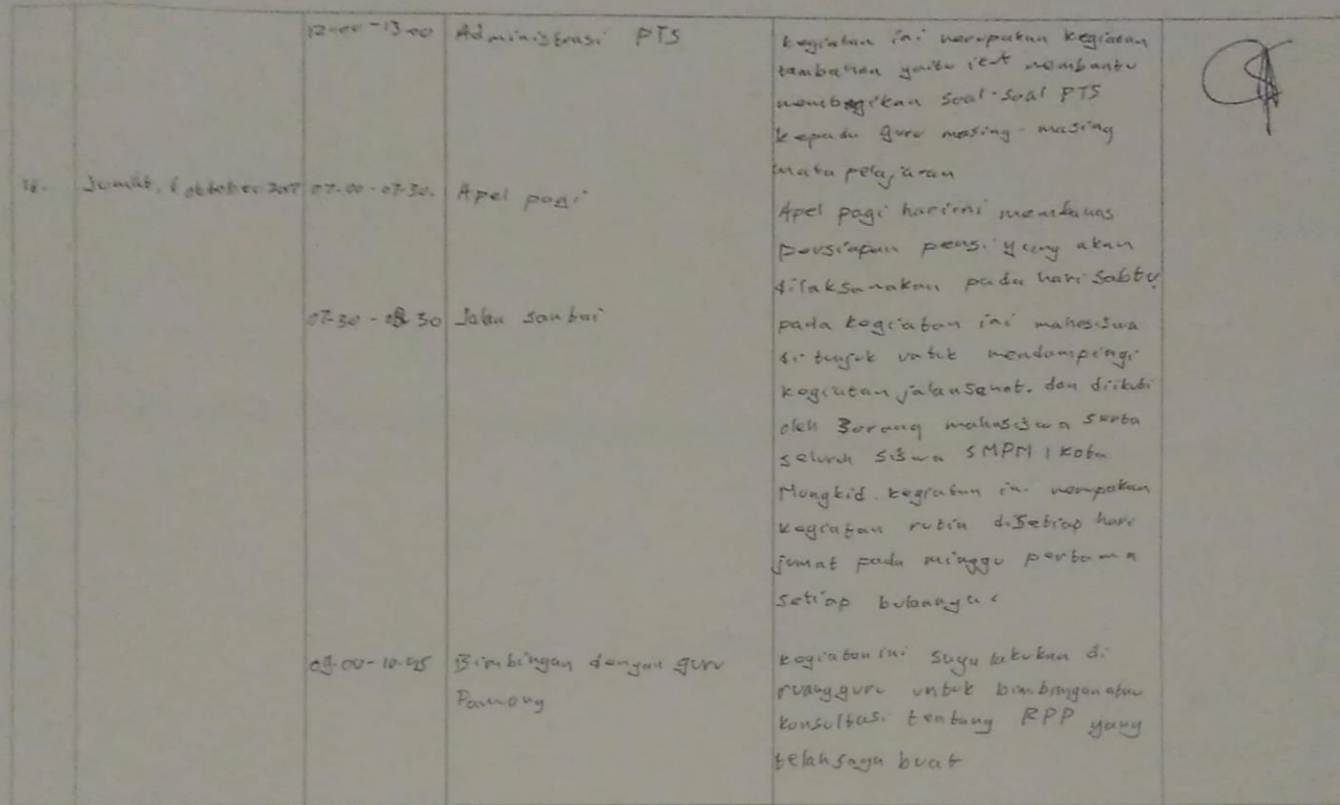 12-00 - 13-00 Administrasi PTS
kegiatan ini merupakan kegiatan
tambahan yaitu ikut membantu
membagikan soal-soal PTS
kepada guru masing-masing
mata pelajaran
18. Jumat, 6 oktober 2017 07-00 - 07-30. Apel pagi
Apel pagi hari ini membahas
persiapan pensi yang akan
dilaksanakan pada hari sabtu
07-30 - 08 30 Jalan santai
pada kegiatan ini mahasiswa
di tunjuk untuk mendampingi
kegiatan jalan sehat. dan diikuti
oleh 3 orang mahasiswa serta
seluruh siswa SMPN 1 Kota
Mungkid. kegiatan ini merupakan
kegiatan rutin disetiap hari
jumat pada minggu pertama
setiap bulannya.
09-00 - 10-45 Bimbingan dengan guru
Pamong
kegiatan ini saya lakukan di
ruang guru untuk bimbingan atau
konsultasi tentang RPP yang
telah saya buat